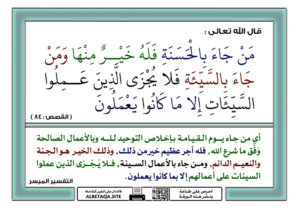 قال الله تعالى :
مَن جَاءَ بِالْحَسَنَةِ فَلَهُ خَيْرٌ مِّنْهَا وَمَن
جَاءَ بِالسَّيِّئَةِ فَلَا يُجْزَى الَّذِينَ عَمِلُوا
السَّيِّئَاتِ إِلَّا مَا كَانُوا يَعْمَلُونَ
(القصص : ٨٤)
أي من جاء يوم القيامة بإخلاص التوحيد لله وبالأعمال الصالحة
وفق ما شرع الله، فله أجر عظيم خير من ذلك، وذلك الخير هو الجنة
والنعيم الدائم، ومن جاء بالأعمال السيئة، فلا يُجْزى الذين عملوا
السيئات على أعمالهم إلا بما كانوا يعملون.
التفسير الميسر
ALBETAQA.SITE